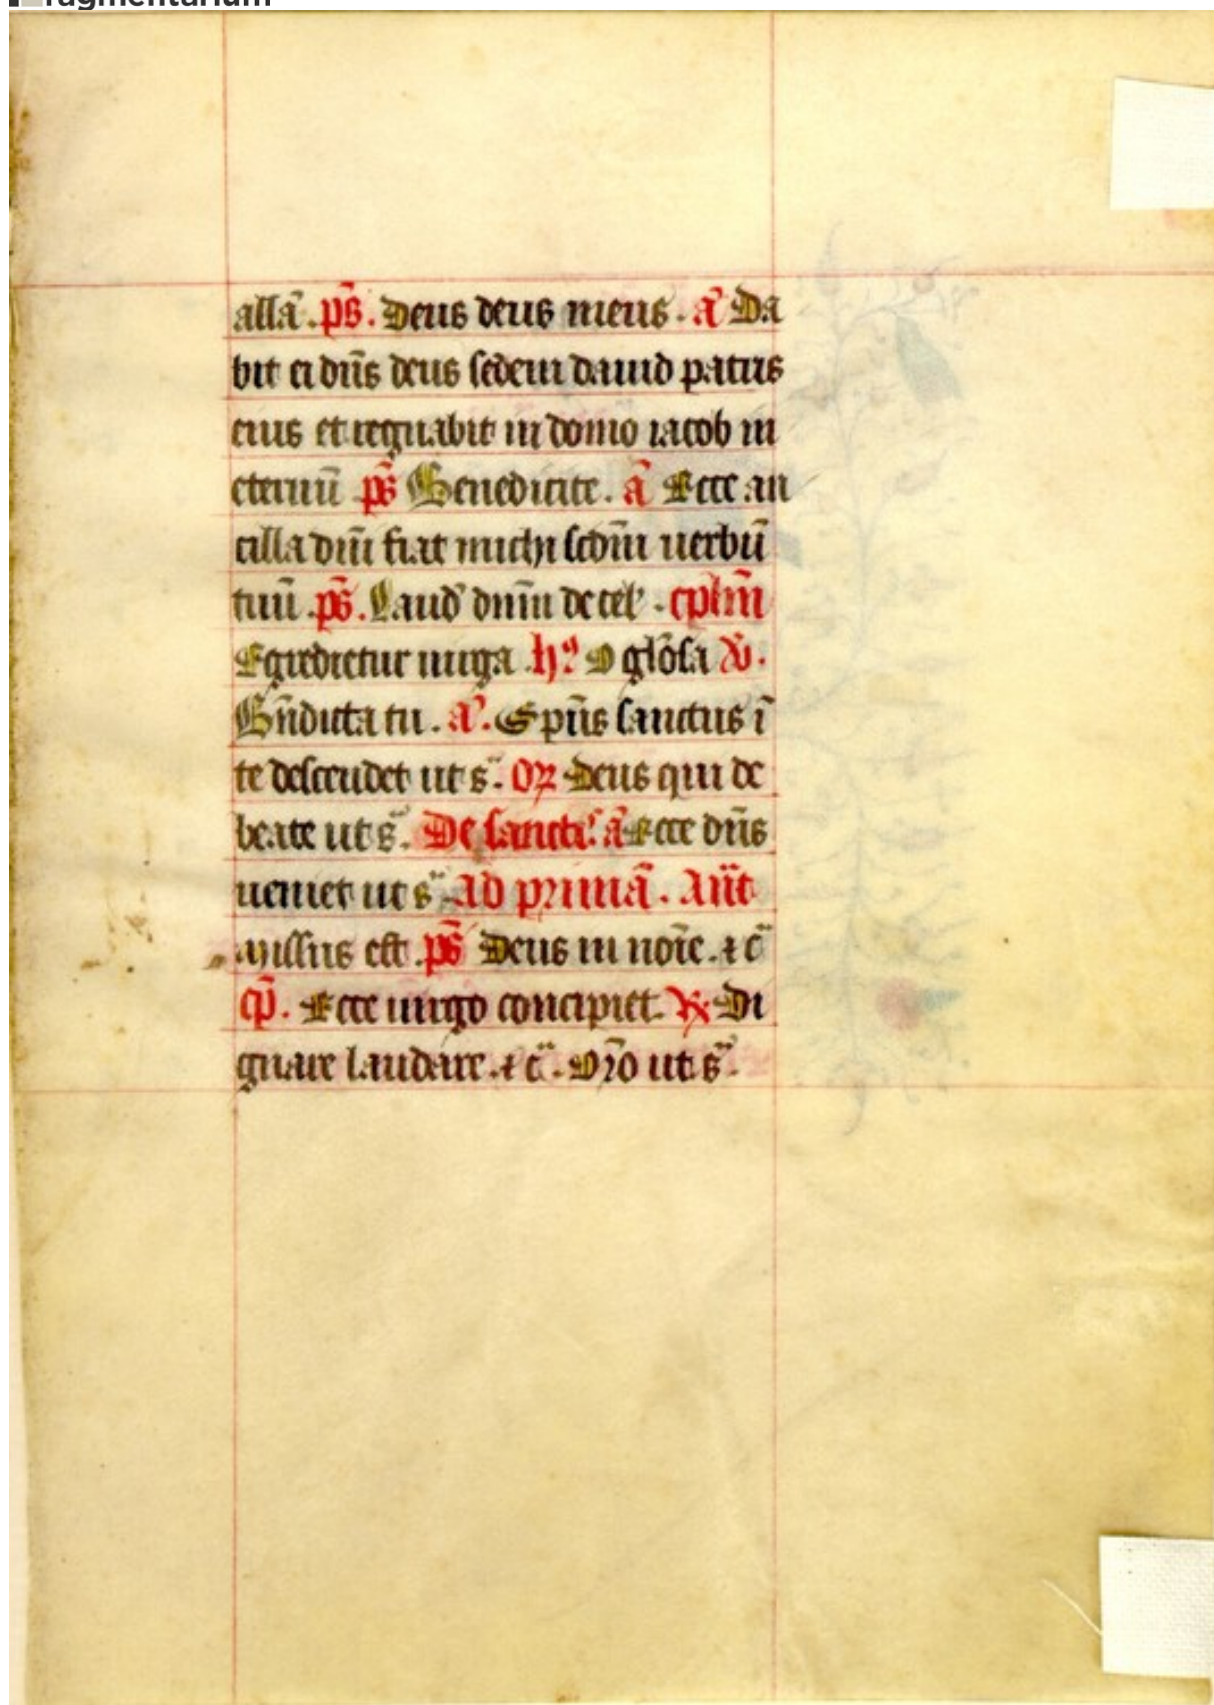 ragmentarium
allā. pš. Deus deus meus. ā Da
bit ei dn̄s deus sedem dauid patris
eius et regnabit in domo iacob in
eternū pš Benedicite. ā Ecce an
cilla dn̄i fiat michi scdm̄ uerbū
tuū. pš. Laud dn̄m de cel'. cplm̄
Egredietur uirga. h9 O glōsa v̄.
Bn̄dicta tu. ā. Sp̄us sanctus ī
te descendet ut s̄. Oꝝ Deus qui de
beate ut s̄. De sanctē. ā Ecce dn̄s
ueniet ut s̄ Ad primā. Ant̄
missus est. pš Deus in noīe. ⁊ c̄
cp̄. Ecce uirgo concipiet. ℟ Di
gnare laudare. ⁊ c̄. Oꝛ̄o ut s̄.